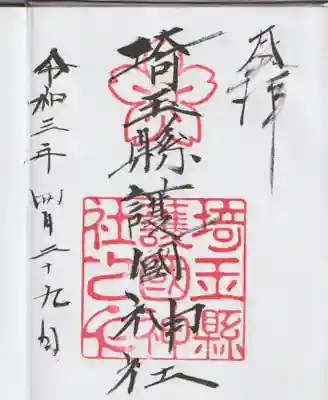 奉拝
埼玉縣護國神社
令和三年四月二十九日
埼玉縣
護國神
社之印